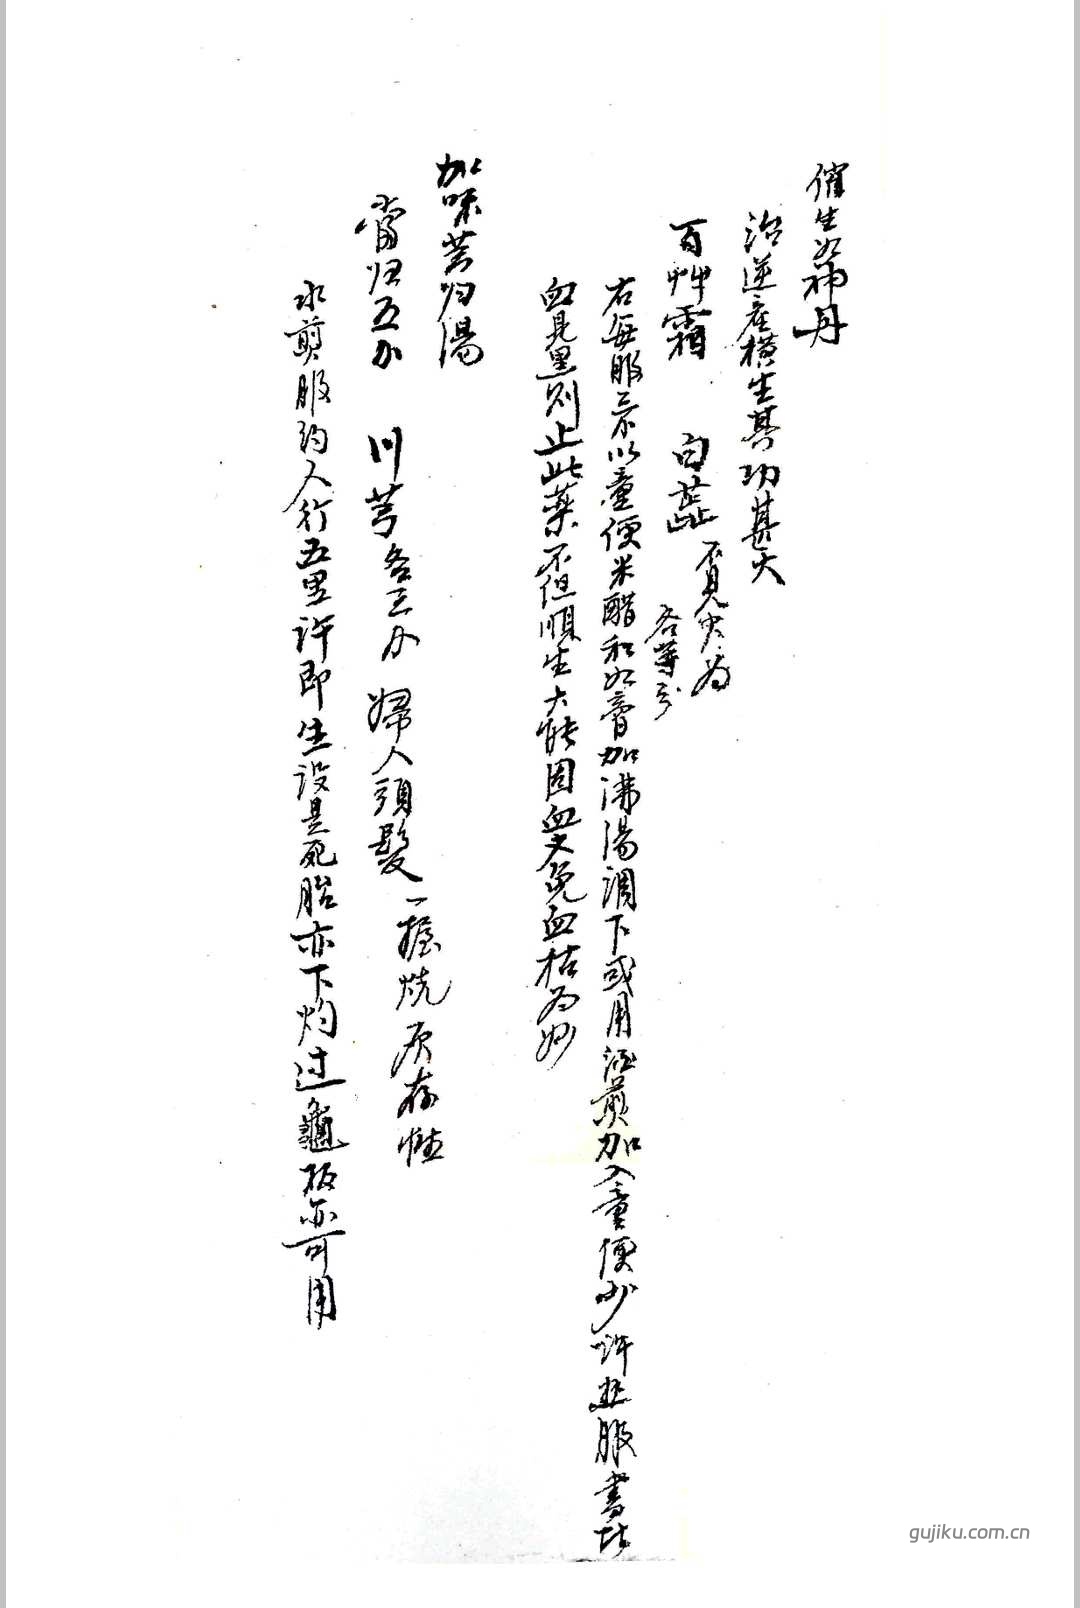 催生如神丹
治逆産横生其功甚大
百艸霜 白芷 不見火为 各等分
右每服三不以童便米醋和如膏加沸湯調下或用酒煎加入童便少許並服書坊
血見黑則止此藥不但順生大能固血又免血枯为妙
加味芎归湯
當归五分 川芎各三分 婦人頭髮一握烧灰存性
水煎服約人行五里許即生設是死胎亦下灼过龜板亦可用
gujiku.com.cn